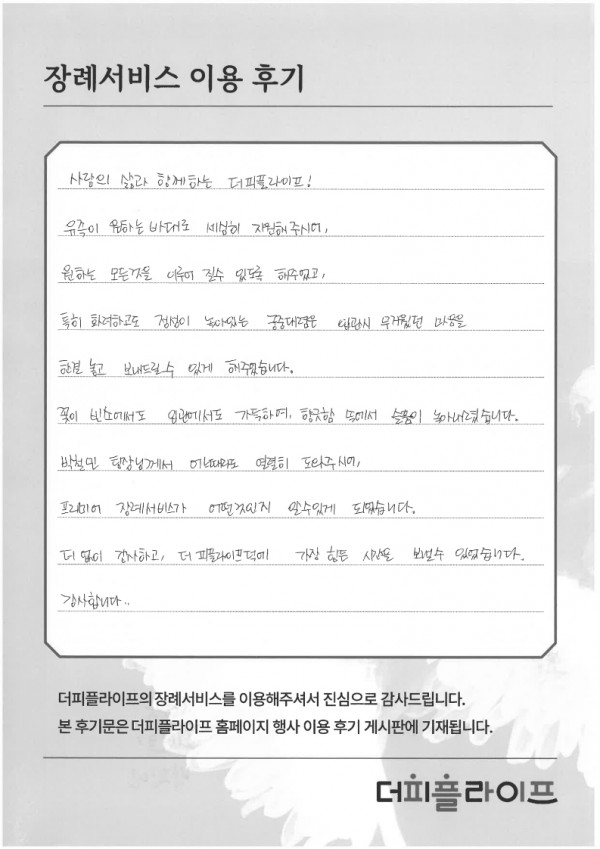 장례서비스 이용 후기
사람의 삶과 함께하는 더피플라이프!
유족이 원하는 바대로 세심히 지원해주시어,
원하는 모든것을 이루어 질수 있도록 해주었고,
특히 화려하고도 정성이 녹아있는 궁중대렴은 입관시 무거웠던 마음을
한결 놓고 보내드릴수 있게 해주었습니다.
꽃이 빈소에서도 입관에서도 가득하여, 향긋함 속에서 슬픔이 녹아내렸습니다.
박철민 팀장님께서 열렬히 도와주시어,
프리미어 장례서비스가 어떤것인지 알수있게 되었습니다.
더 없이 감사하고, 더 피플라이프덕에 가장 힘든 시간을 보낼수 있었습니다.
감사합니다..
더피플라이프의 장례서비스를 이용해주셔서 진심으로 감사드립니다.
본 후기문은 더피플라이프 홈페이지 행사 이용 후기 게시판에 기재됩니다.
더피플라이프